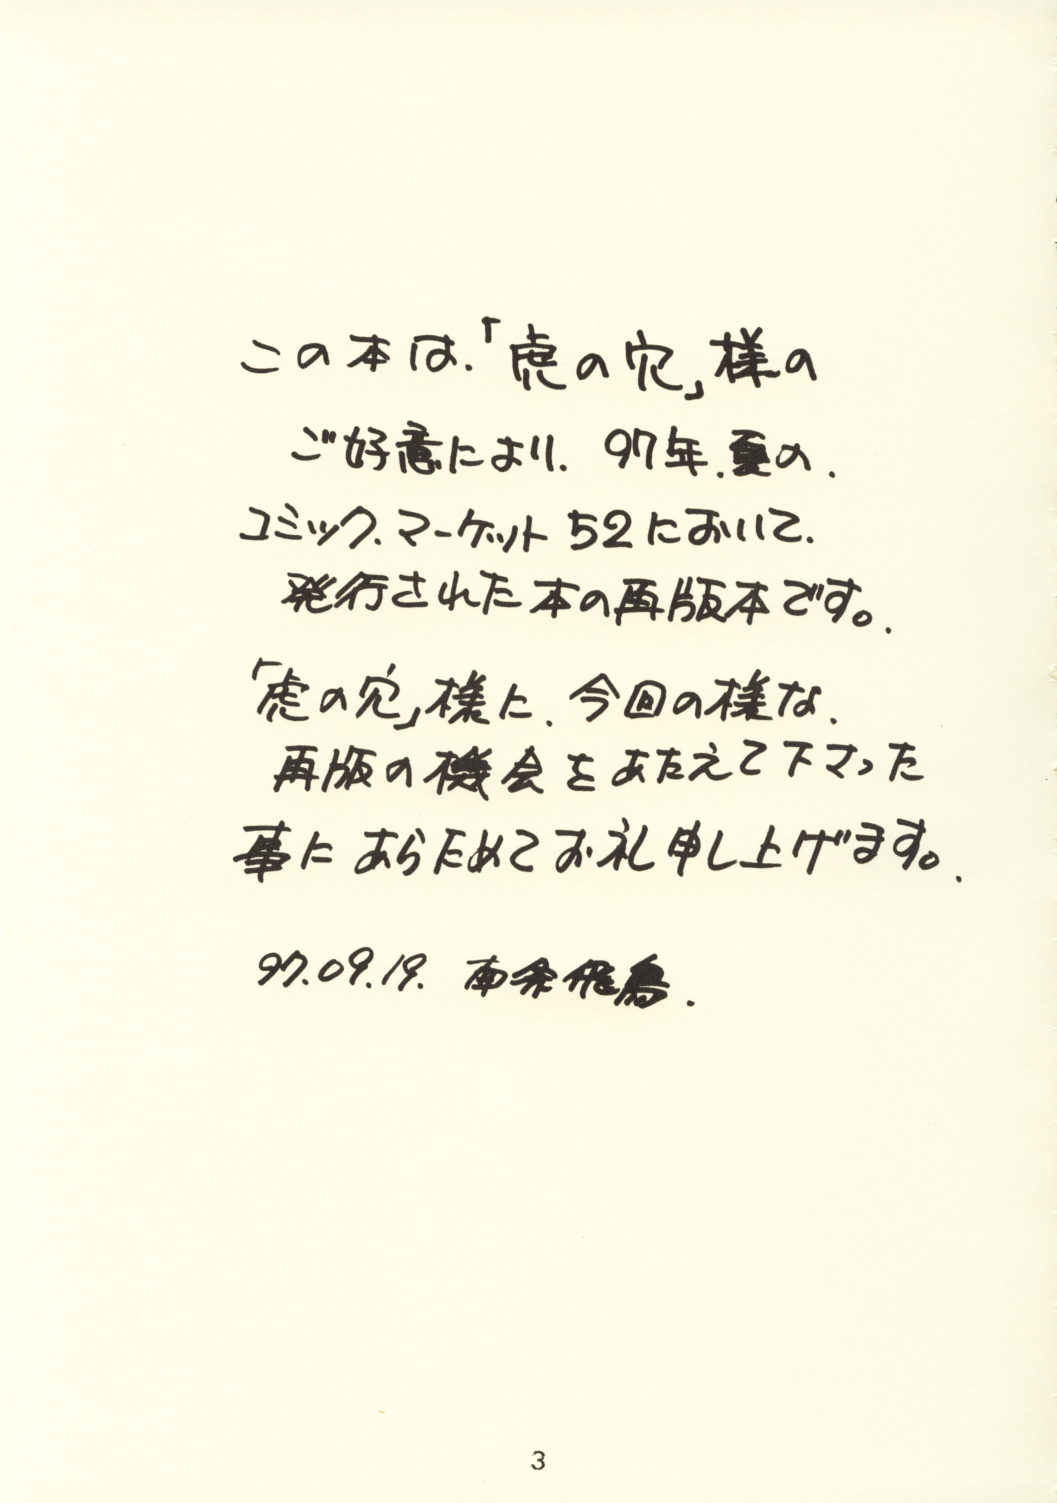 この本は、「虎の穴」様の
ご好意により、97年、夏の、
コミック、マーケット52において、
発行された本の再版本です。
「虎の穴」様に、今回の様な、
再版の機会をあたえて下さった
事にあらためてお礼申し上げます。
97.09.19. 南奈飛鳥.
3